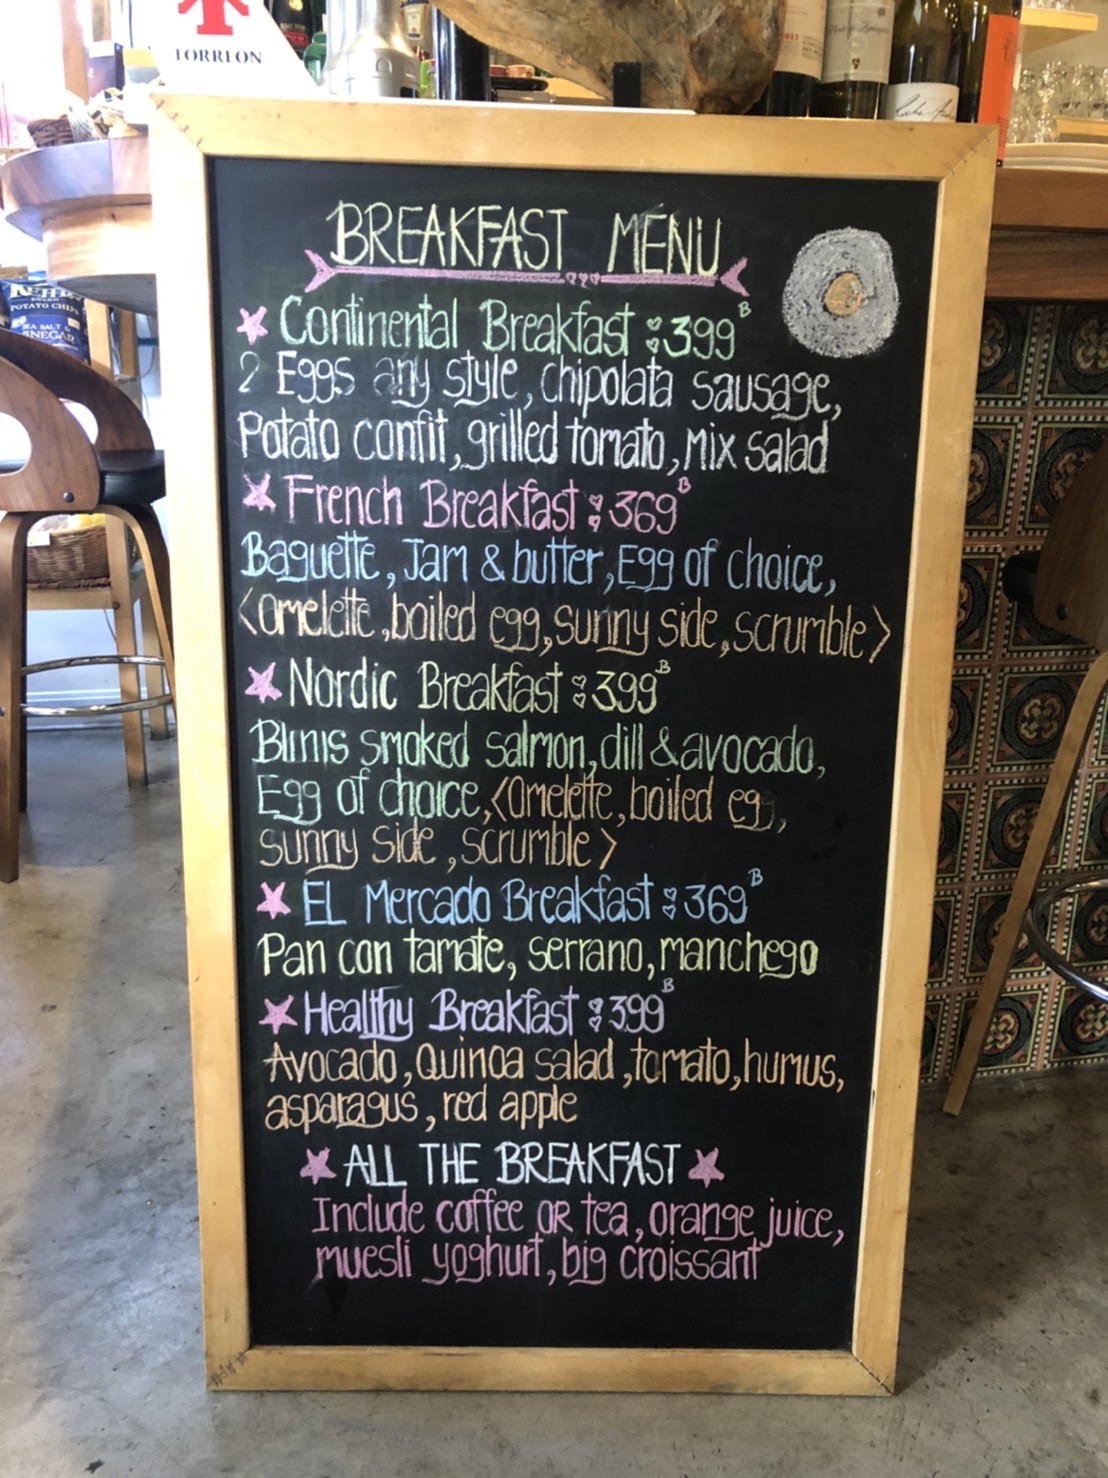 TORREON
KETTLE
BRAND
POTATO CHIPS
SEA SALT &
VINEGAR
BREAKFAST MENU
Continental Breakfast : 399 B
2 Eggs any style, chipolata sausage,
Potato confit, grilled tomato, mix salad
French Breakfast : 369 B
Baguette, Jam & butter, Egg of choice,
<omelette, boiled egg, sunny side, scrumble>
Nordic Breakfast : 399 B
Blinis smoked salmon, dill & avocado,
Egg of choice, <omelette, boiled egg,
sunny side, scrumble>
EL Mercado Breakfast : 369 B
Pan con tamate, serrano, manchego
Healthy Breakfast : 399 B
Avocado, Quinoa salad, tomato, humus,
asparagus, red apple
ALL THE BREAKFAST
Include coffee OR tea, orange juice,
muesli yoghurt, big croissant